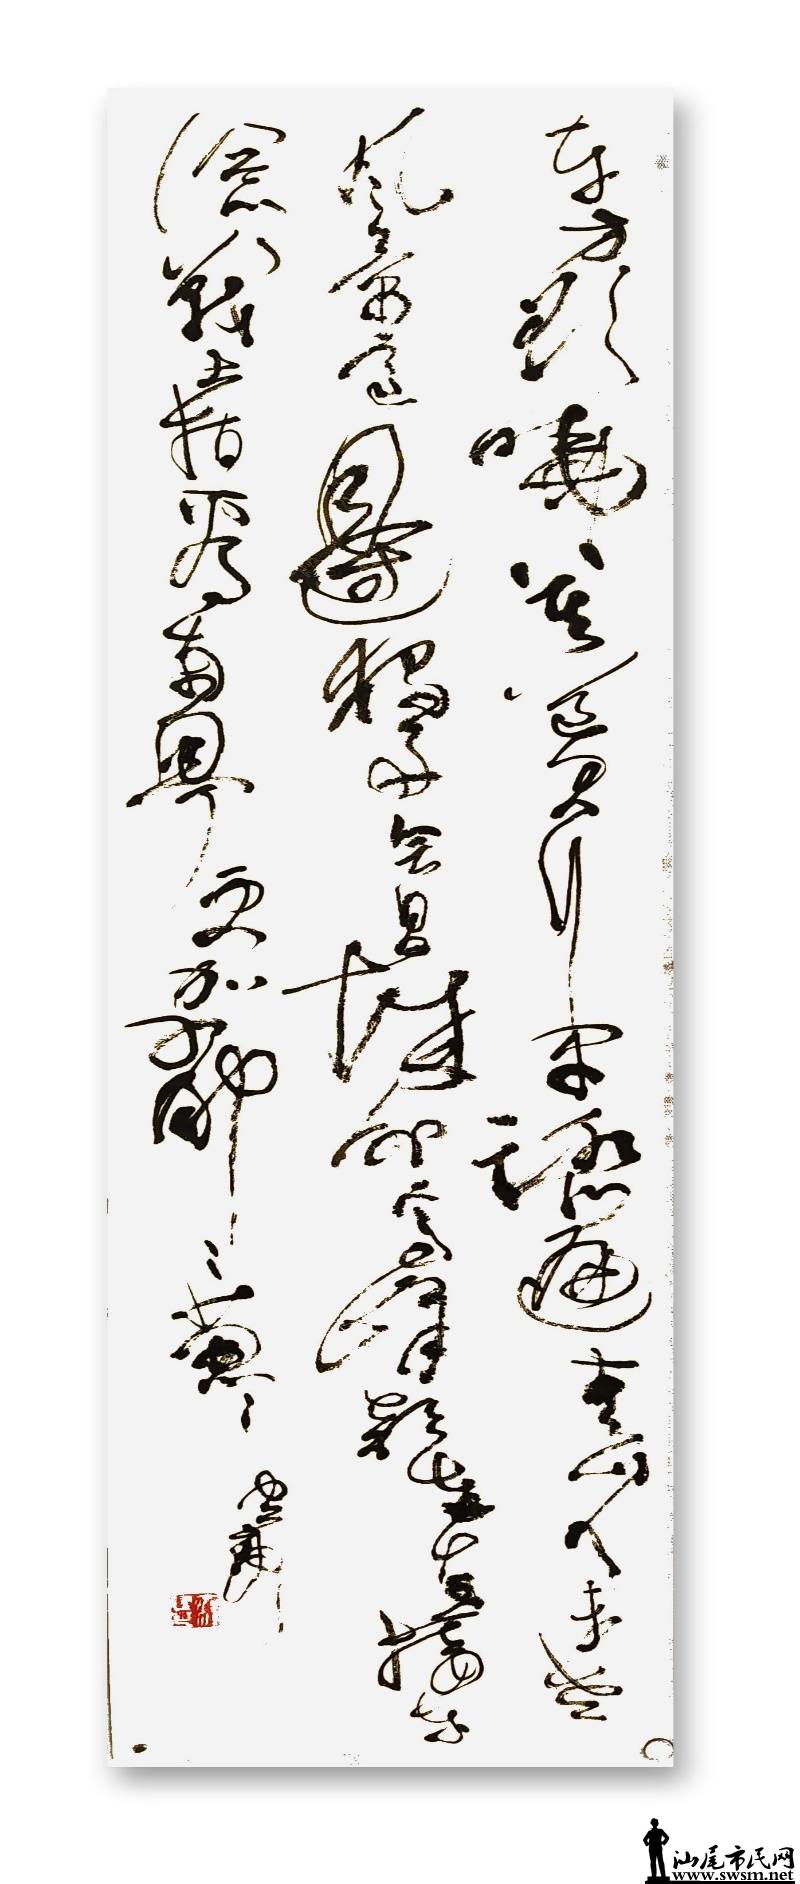 东方欲曉莫道君行早踏遍青山人未老
风景這邊獨好会昌城外高峰颠連直接东
溟戰士指看南粤更加郁々葱々
汕尾市民网
www.swsm.net